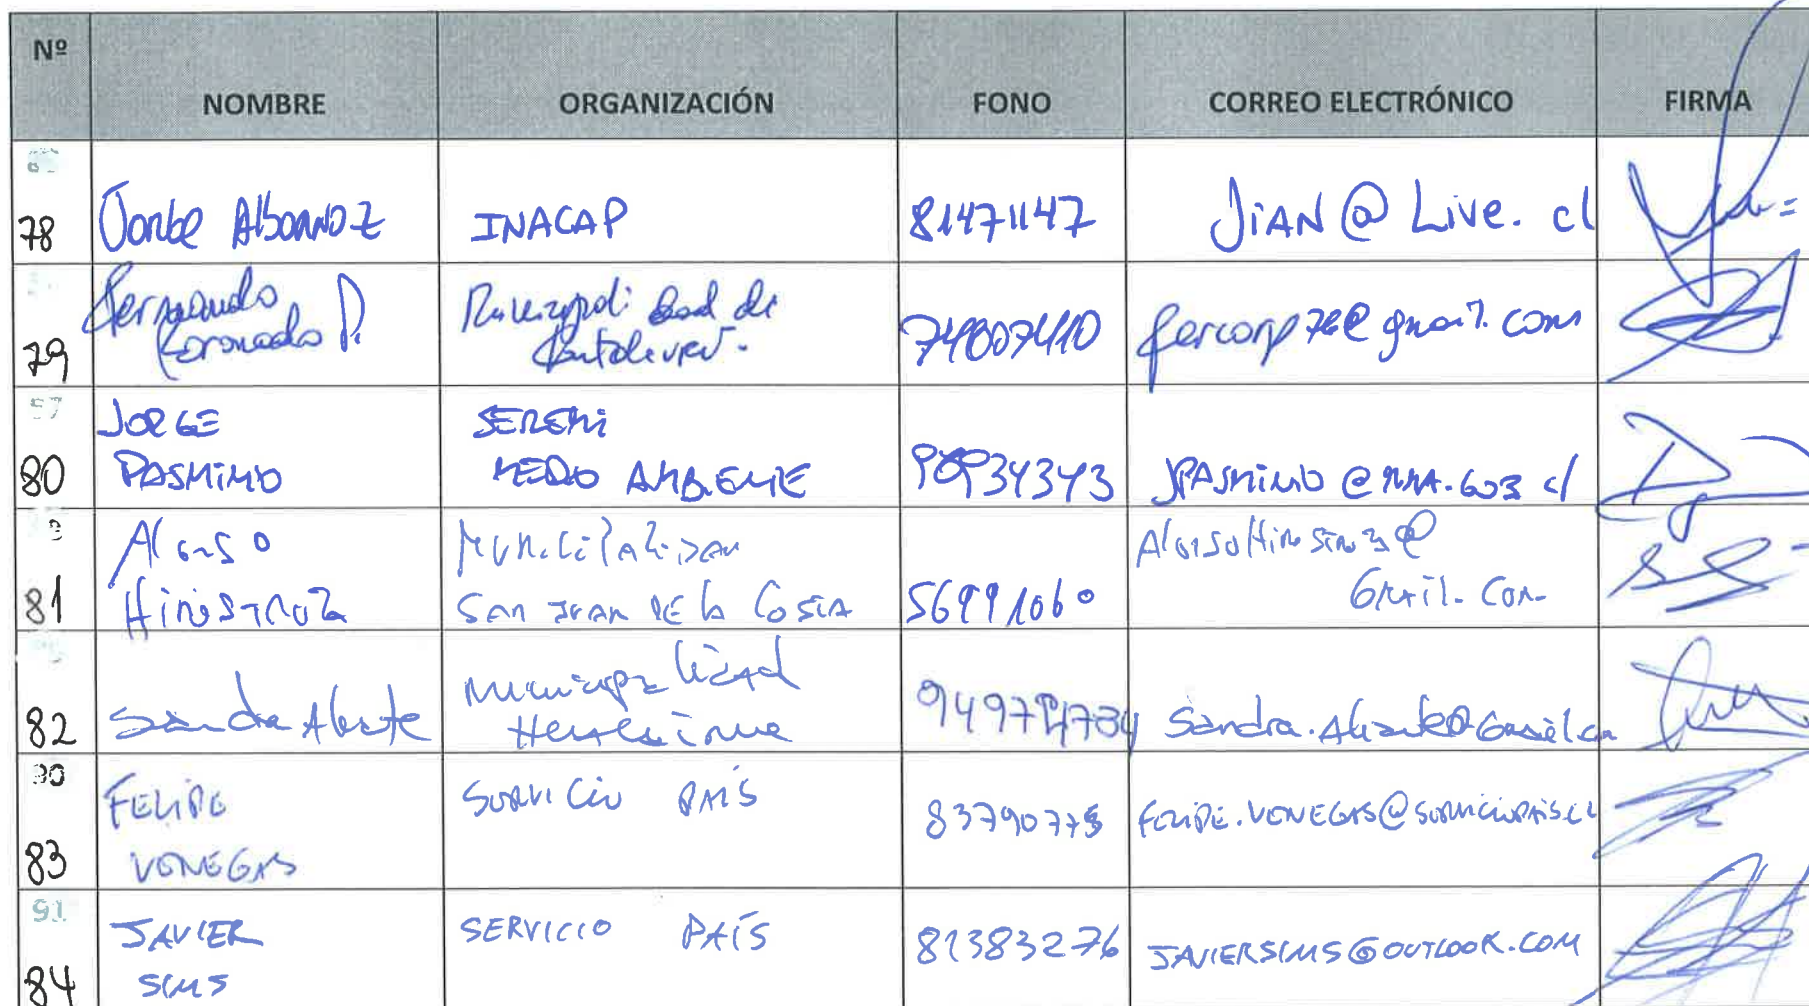 Nº NOMBRE ORGANIZACIÓN FONO CORREO ELECTRÓNICO FIRMA
78 Jorge Albornoz INACAP 81471147 JiAN@Live.cl
79 Fernando Coronado P. Municipalidad de 74807410 fercorp78@gmail.com
80 JORGE PASMIÑO SEREMI MEDIO AMBIENTE 90934343 JPASMINO@MMA.GOB.cl
81 Alonso HinosTroza MUNiCiPALiDAD SAN JUAN DE LA COSTA 56991060 @GMAiL.COM
82 Sandra Municipalidad Sandra.
83 FELIPE VENEGAS SERVICIO PAÍS FELIPE.VENEGAS@SERVICIOPAIS.CL
84 JAVIER SIMS SERVICIO PAÍS 81383276 JAVIERSIMS@OUTLOOK.COM